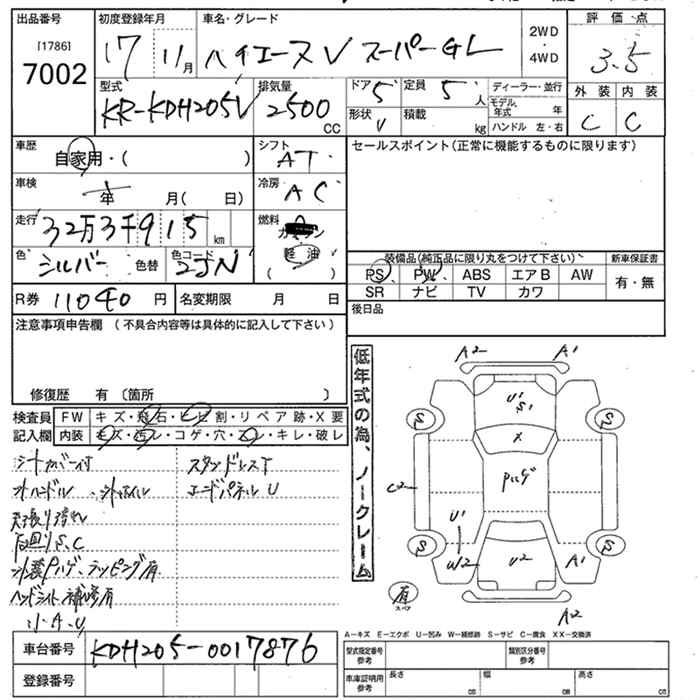 出品番号
[1786]
7002
初度登録年月
17 11月
車名・グレード
ハイエースV スーパーGL
2WD
4WD
評価点
3.5
型式
KR-KDH205V
排気量
2500
CC
ドア 5
定員 5 人
形状 V
積載 kg
ディーラー・並行
モデル年式 年
ハンドル 左・右
外装 内装
C C
車歴
自家用・( )
シフト
AT
セールスポイント(正常に機能するものに限ります)
車検
年 月( 日)
冷房
AC
走行
32万3千915 km
燃料
軽油
( )
色
シルバー 色替
色コード
2JN
装備品(純正品に限り丸をつけて下さい) 新車保証書
PS PW ABS エアB AW 有・無
SR ナビ TV カワ
R券 11040 円 名変期限 月 日
後日品
注意事項申告欄 (不具合内容等は具体的に記入して下さい)
修復歴 有 〔箇所 〕
低年式の為、ノークレーム
検査員 FW キズ・飛石・ヒビ割・リペア跡・X要
記入欄 内装 キズ・汚レ・コゲ・穴・スレ・キレ・破レ
シートカバー付 スタンドレスT
オハンドル エンドパネルU
天張り汚れ
下回りS、C
ヘッドライト補修有
小A、U
A2 A1
U1
S1
S S
X
C2
U1
W2
U2
S S
A1
有
スペア
A2
車台番号 KDH205-0017876
登録番号
A−キズ E−エクボ U−凹み W−補修跡 S−サビ C−腐食 XX−交換済
型式指定番号 参考 類別区分番号 参考
車庫証明用 参考 長さ cm 幅 cm 高さ cm